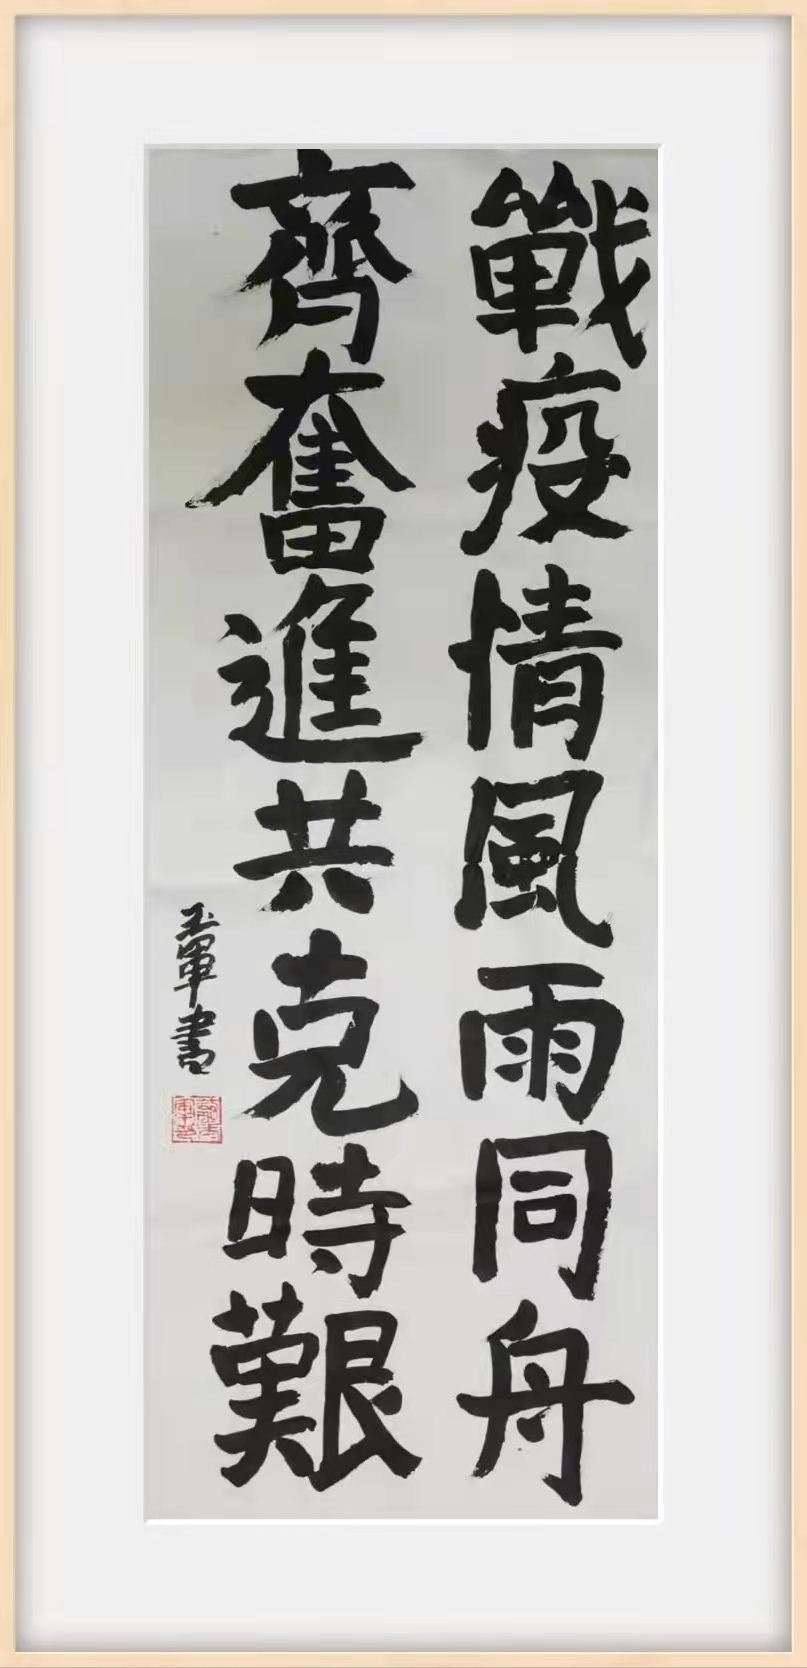 戰疫情風雨同舟
齊奮進共克時艱
玉軍書